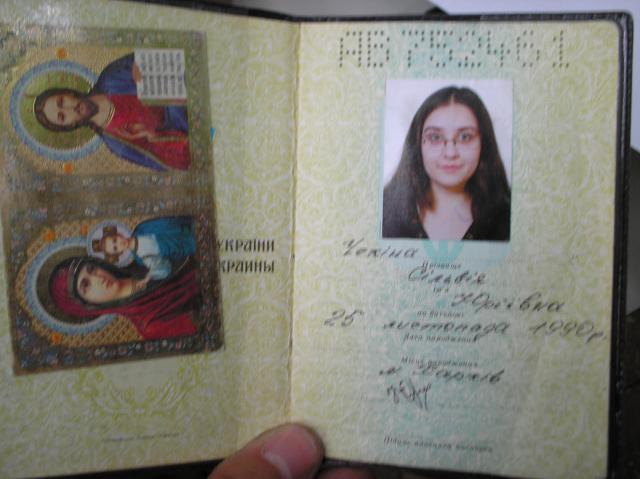 752461
УКРАЇНИ
КРАИНЫ
Чекіна
Прізвище
Сільвія
Ім'я
Юріївна
По батькові
25 листопада 1990 р.
Дата народження
Місце народження
м. Харків
Підпис власника паспорта